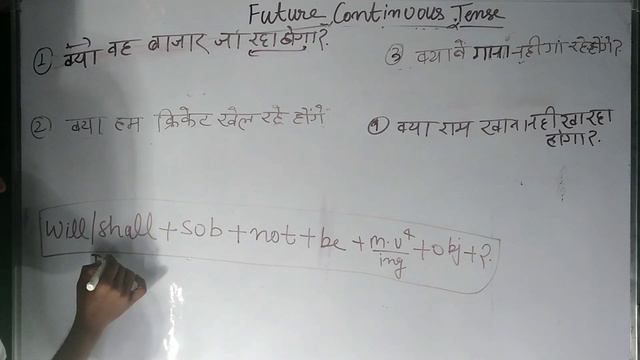 Future Continuous Tense
① क्यो वह बाजार जा रहा होगा?
③ क्या वे गाना नही गा रहे होंगे?
② क्या हम क्रिकेट खेल रहे होंगे
④ क्या राम खाना नही खा रहा
होगा?
will/shall + sob + not + be + m.v⁴/ing + obj + ?